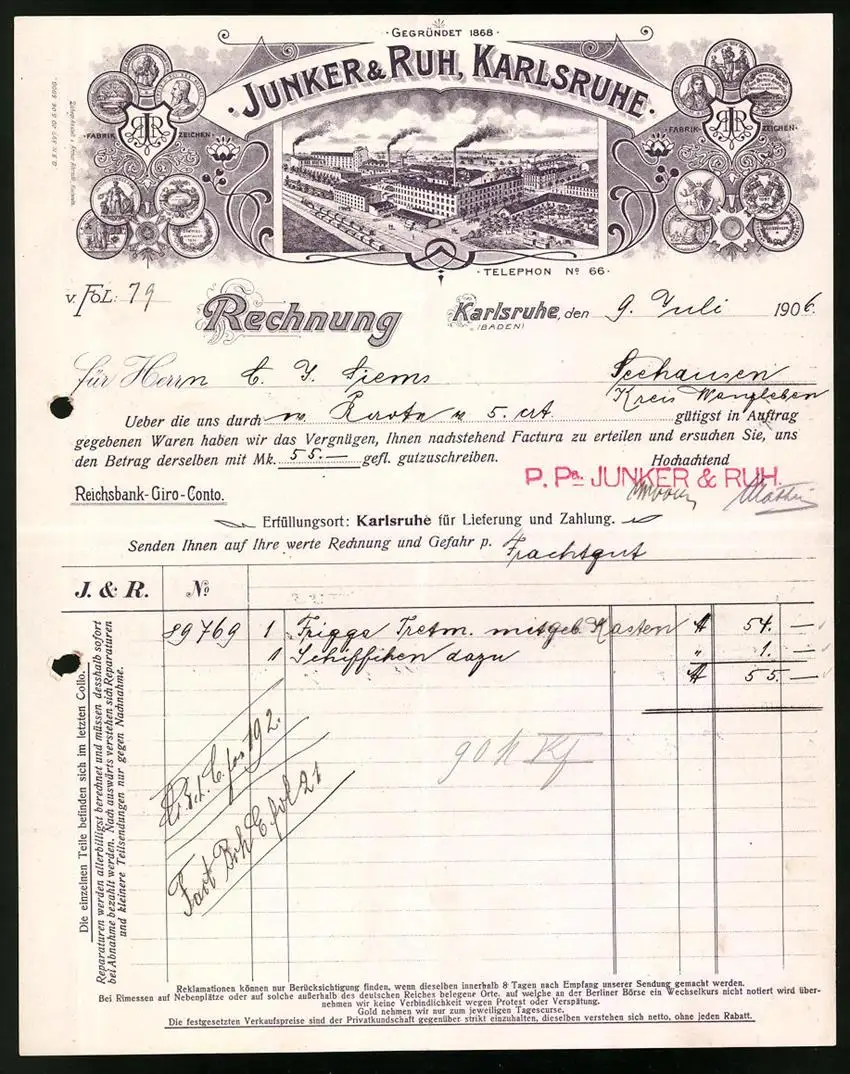 · GEGRÜNDET 1868 ·
· JUNKER & RUH, KARLSRUHE ·
· FABRIK ZEICHEN ·
· FABRIK ZEICHEN ·
· TELEPHON No 66 ·
v. FOL: 79
Rechnung
Karlsruhe, den 9. Juli 1906.
(BADEN)
für Herrn C. J. Siems Seehausen
Kreis Wanzleben
Ueber die uns durch 5. crt. gütigst in Auftrag
gegebenen Waren haben wir das Vergnügen, Ihnen nachstehend Factura zu erteilen und ersuchen Sie, uns
den Betrag derselben mit Mk. 55.— gefl. gutzuschreiben. Hochachtend
P. Pa. JUNKER & RUH.
Reichsbank-Giro-Conto.
Erfüllungsort: Karlsruhe für Lieferung und Zahlung.
Senden Ihnen auf Ihre werte Rechnung und Gefahr p. Frachtgut
J. & R. No
89769 1 Frigga Tretm. mit geb. Kasten M 54. —
1 Schiffchen dazu " 1. —
M 55. —
Die einzelnen Teile befinden sich im letzten Collo.
Reparaturen werden allerbilligst berechnet und müssen desshalb sofort
bei Abnahme bezahlt werden. Nach auswärts verstehen sich Reparaturen
und kleinere Teilsendungen nur gegen Nachnahme.
C. fol 192.
fol 21
Reklamationen können nur Berücksichtigung finden, wenn dieselben innerhalb 8 Tagen nach Empfang unserer Sendung gemacht werden.
Bei Rimessen auf Nebenplätze oder auf solche außerhalb des deutschen Reiches belegene Orte, auf welche an der Berliner Börse ein Wechselkurs nicht notiert wird über-
nehmen wir keine Verbindlichkeit wegen Protest oder Verspätung.
Gold nehmen wir nur zum jeweiligen Tagescurse.
Die festgesetzten Verkaufspreise sind der Privatkundschaft gegenüber strikt einzuhalten, dieselben verstehen sich netto, ohne jeden Rabatt.